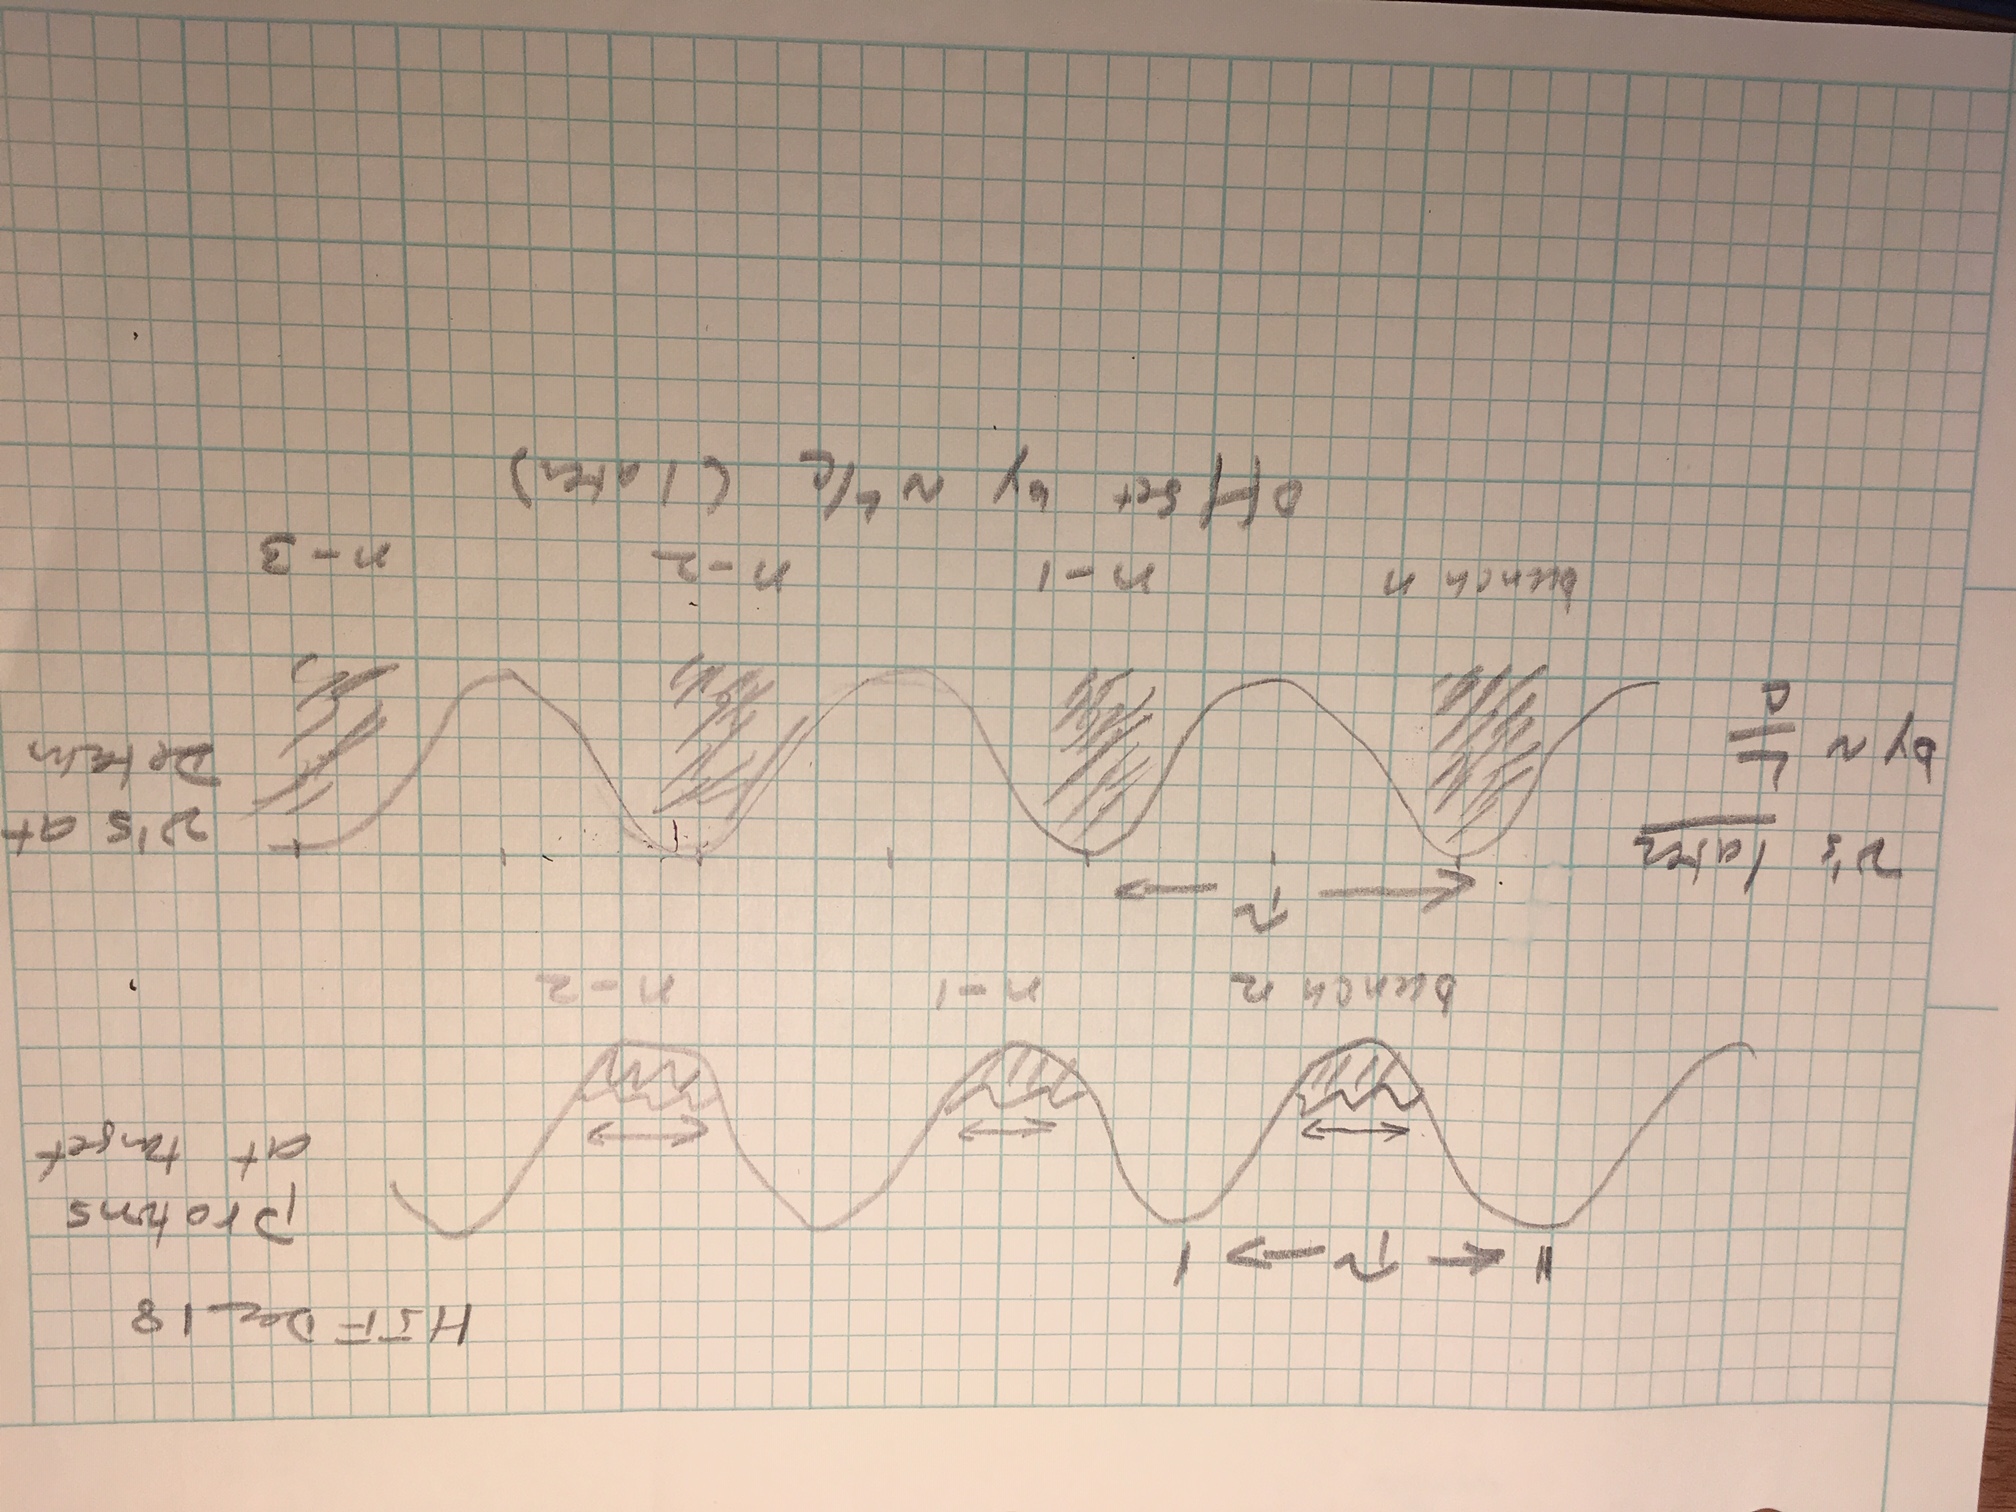 HJF Dec 18
← τ →
Protons
at target
bunch n n-1 n-2
← τ →
ν's later
by ~ L/c
ν's at
bunch n n-1 n-2 n-3
Offset by ~ L/c (later)